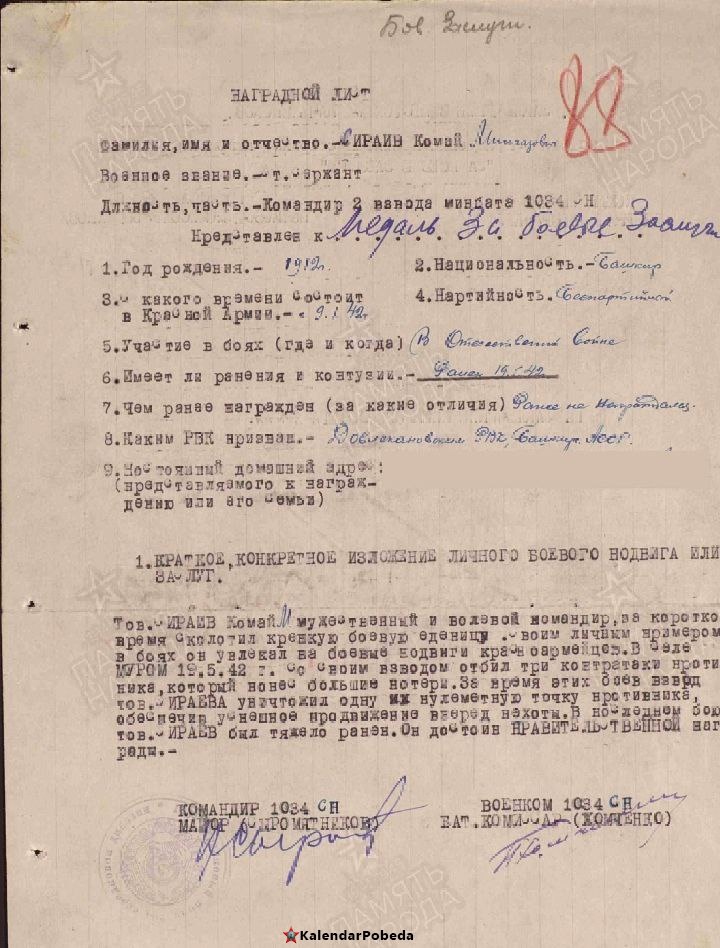 Бов. Заслуги.
88
НАГРАДНОЙ ЛИСТ
Фамилия,имя и отчество.-СИРАИВ Комай Мингазович
Военное звание.-ст.сержант
Должность,часть.-Командир 2 взвода минбата 1034 СН
Нредставлен к Медаль За боевые Заслуги
1.Год рождения.- 1912г. 2.Национальность.-Башкир
3.С какого времени состоит 4.Нартийность.Беспартийный
в Красной Армии.-с 9.1.42г
5.Участие в боях (где и когда) В Отечественной Войне
6.Имеет ли ранения и контузии.- Ранен 19.5.42
7.Чем ранее награжден (за какие отличия) Ранее не награждался.
8.Каким РВК нризван.- Довлекановским РВК, Башкир. АССР.
9.Ностоянный домашний адрес:
(нредставляемого к награж-
дению или его семьи)
1.КРАТКОЕ,КОНКРЕТНОЕ ИЗЛОЖЕНИЕ ЛИЧНОГО БОЕВОГО НОДВИГА ИЛИ
ЗАСЛУГ.
Тов.СИРАИВ Комай М мужественный и волевой командир,за коротко
время сколотил кренкую боевую еденицу .Своим личным нримером
в боях он увлекал на боевые нодвиги красноармейцев.В селе
МУРОМ 19.5.42 г. со своим взводом отбил три контратаки нроти
ника,который нонес большие нотери.За время этих боев взвод
тов.СИРАЕВА уничтожил одну нулеметную точку нротивника,
обеспечив уснешное нродвижение вперед нехоты.В носледнем бою
тов.СИРАЕВ был тяжело ранен.Он достоин НРАВИТЕЛЬСТВЕННОЙ наг
рады.-
КОМАНДИР 1034 СН ВОЕНКОМ 1034 СН
МАЙОР (СЫРОМЯТНИКОВ) БАТ.КОМИССАР (ХОМЧЕНКО)
ПАМЯТЬ НАРОДА
KalendarPobeda